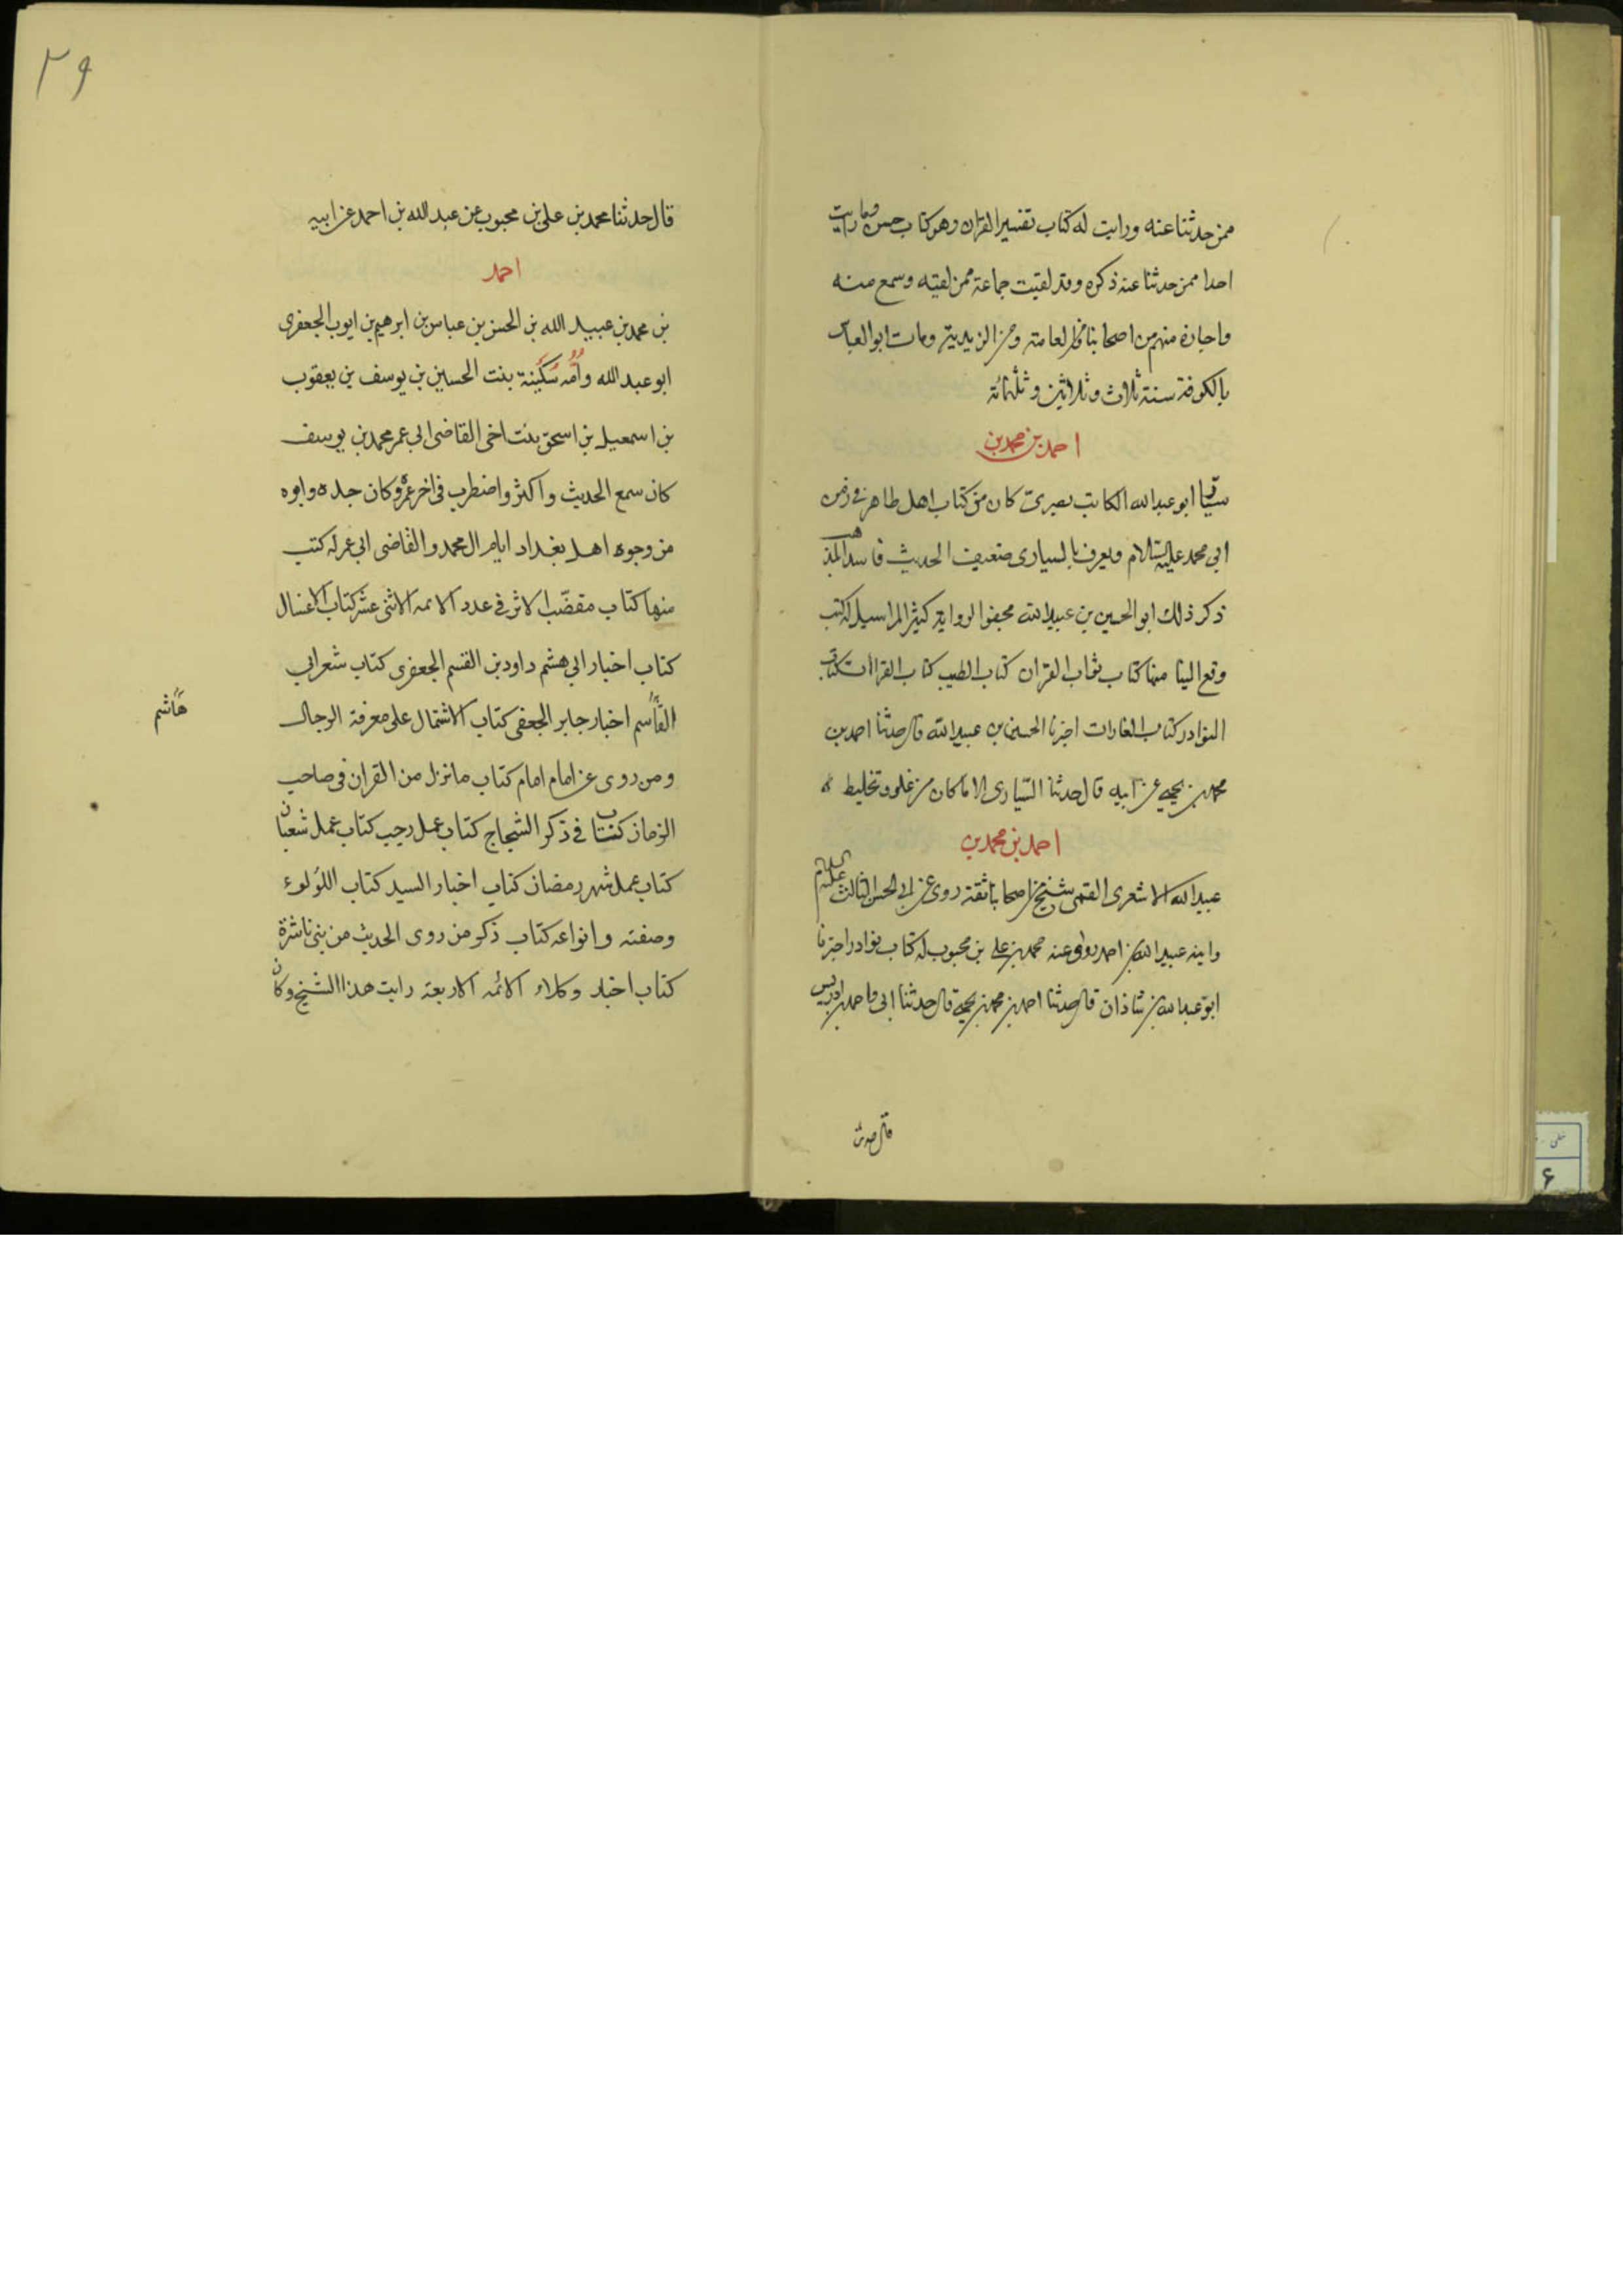 ممن حدثنا عنه ورايت له كتاب تفسير القران وهو كتاب حسن وما رايت
احدا ممن حدثنا عنه ذكره وقد لقيت جماعة ممن لقيه وسمع منه
واجازه منهم من اصحابنا ومن العامة ومن الزيدية ومات ابو العباس
بالكوفة سنة ثلاث وثلاثين وثلثمائة
احمد بن محمد بن
سيار ابو عبد الله الكاتب بصرى كان من كتاب اهل طاهر فى زمن
ابى محمد عليه السلام ويعرف بالسيارى ضعيف الحديث فاسد المذهب
ذكر ذلك ابو الحسين بن عبيد الله مجفو الرواية كثير المراسيل له كتب
وقع الينا منها كتاب ثواب القران كتاب الطب كتاب القراات كتاب
النوادر كتاب الغارات اخبرنا الحسين بن عبيد الله قال حدثنا احمد بن
محمد بن يحيى عن ابيه قال حدثنا السيارى الا ما كان من غلو وتخليط
احمد بن محمد بن
عبيد الله الاشعرى القمى شيخ من اصحابنا ثقة روى عن ابى الحسن الثالث عليه السلام
وابنه عبيد الله بن احمد روى عنه محمد بن على بن محبوب له كتاب نوادر اخبرنا
ابو عبد الله بن شاذان قال حدثنا احمد بن محمد بن يحيى قال حدثنا ابى واحمد بن ادريس
قال حدثنا
٢٩
قال حدثنا محمد بن على بن محبوب عن عبد الله بن احمد عن ابيه
احمد
بن محمد بن عبيد الله بن الحسن بن عباس بن ابرهيم بن ايوب الجعفرى
ابو عبد الله وامه سكينة بنت الحسين بن يوسف بن يعقوب
بن اسمعيل بن اسحق بنت اخى القاضى ابى عمر محمد بن يوسف
كان سمع الحديث واكثر واضطرب فى اخر عمره وكان جده وابوه
من وجوه اهل بغداد ايام ال محمد والقاضى ابى عمر له كتب
منها كتاب مقضّب الاثر فى عدد الائمه الاثنى عشر كتاب الاغسال
كتاب اخبار ابى هشم داود بن القسم الجعفرى كتاب شعر ابى
القاسم اخبار جابر الجعفى كتاب الاشتمال على معرفة الرجال
هاشم
ومن روى عن امام امام كتاب ما نزل من القران فى صاحب
الزمان كتاب فى ذكر الشجاج كتاب عمل رجب كتاب عمل شعبان
كتاب عمل شهر رمضان كتاب اخبار السيد كتاب اللؤلوء
وصفته وانواعه كتاب ذكر من روى الحديث من بنى ناشرة
كتاب اخبار وكلاء الائمه الاربعة رايت هذا الشيخ وكان